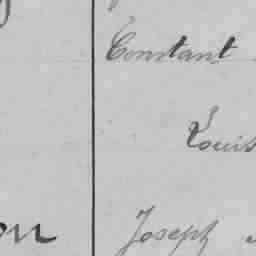 Constant
Louis
on Joseph